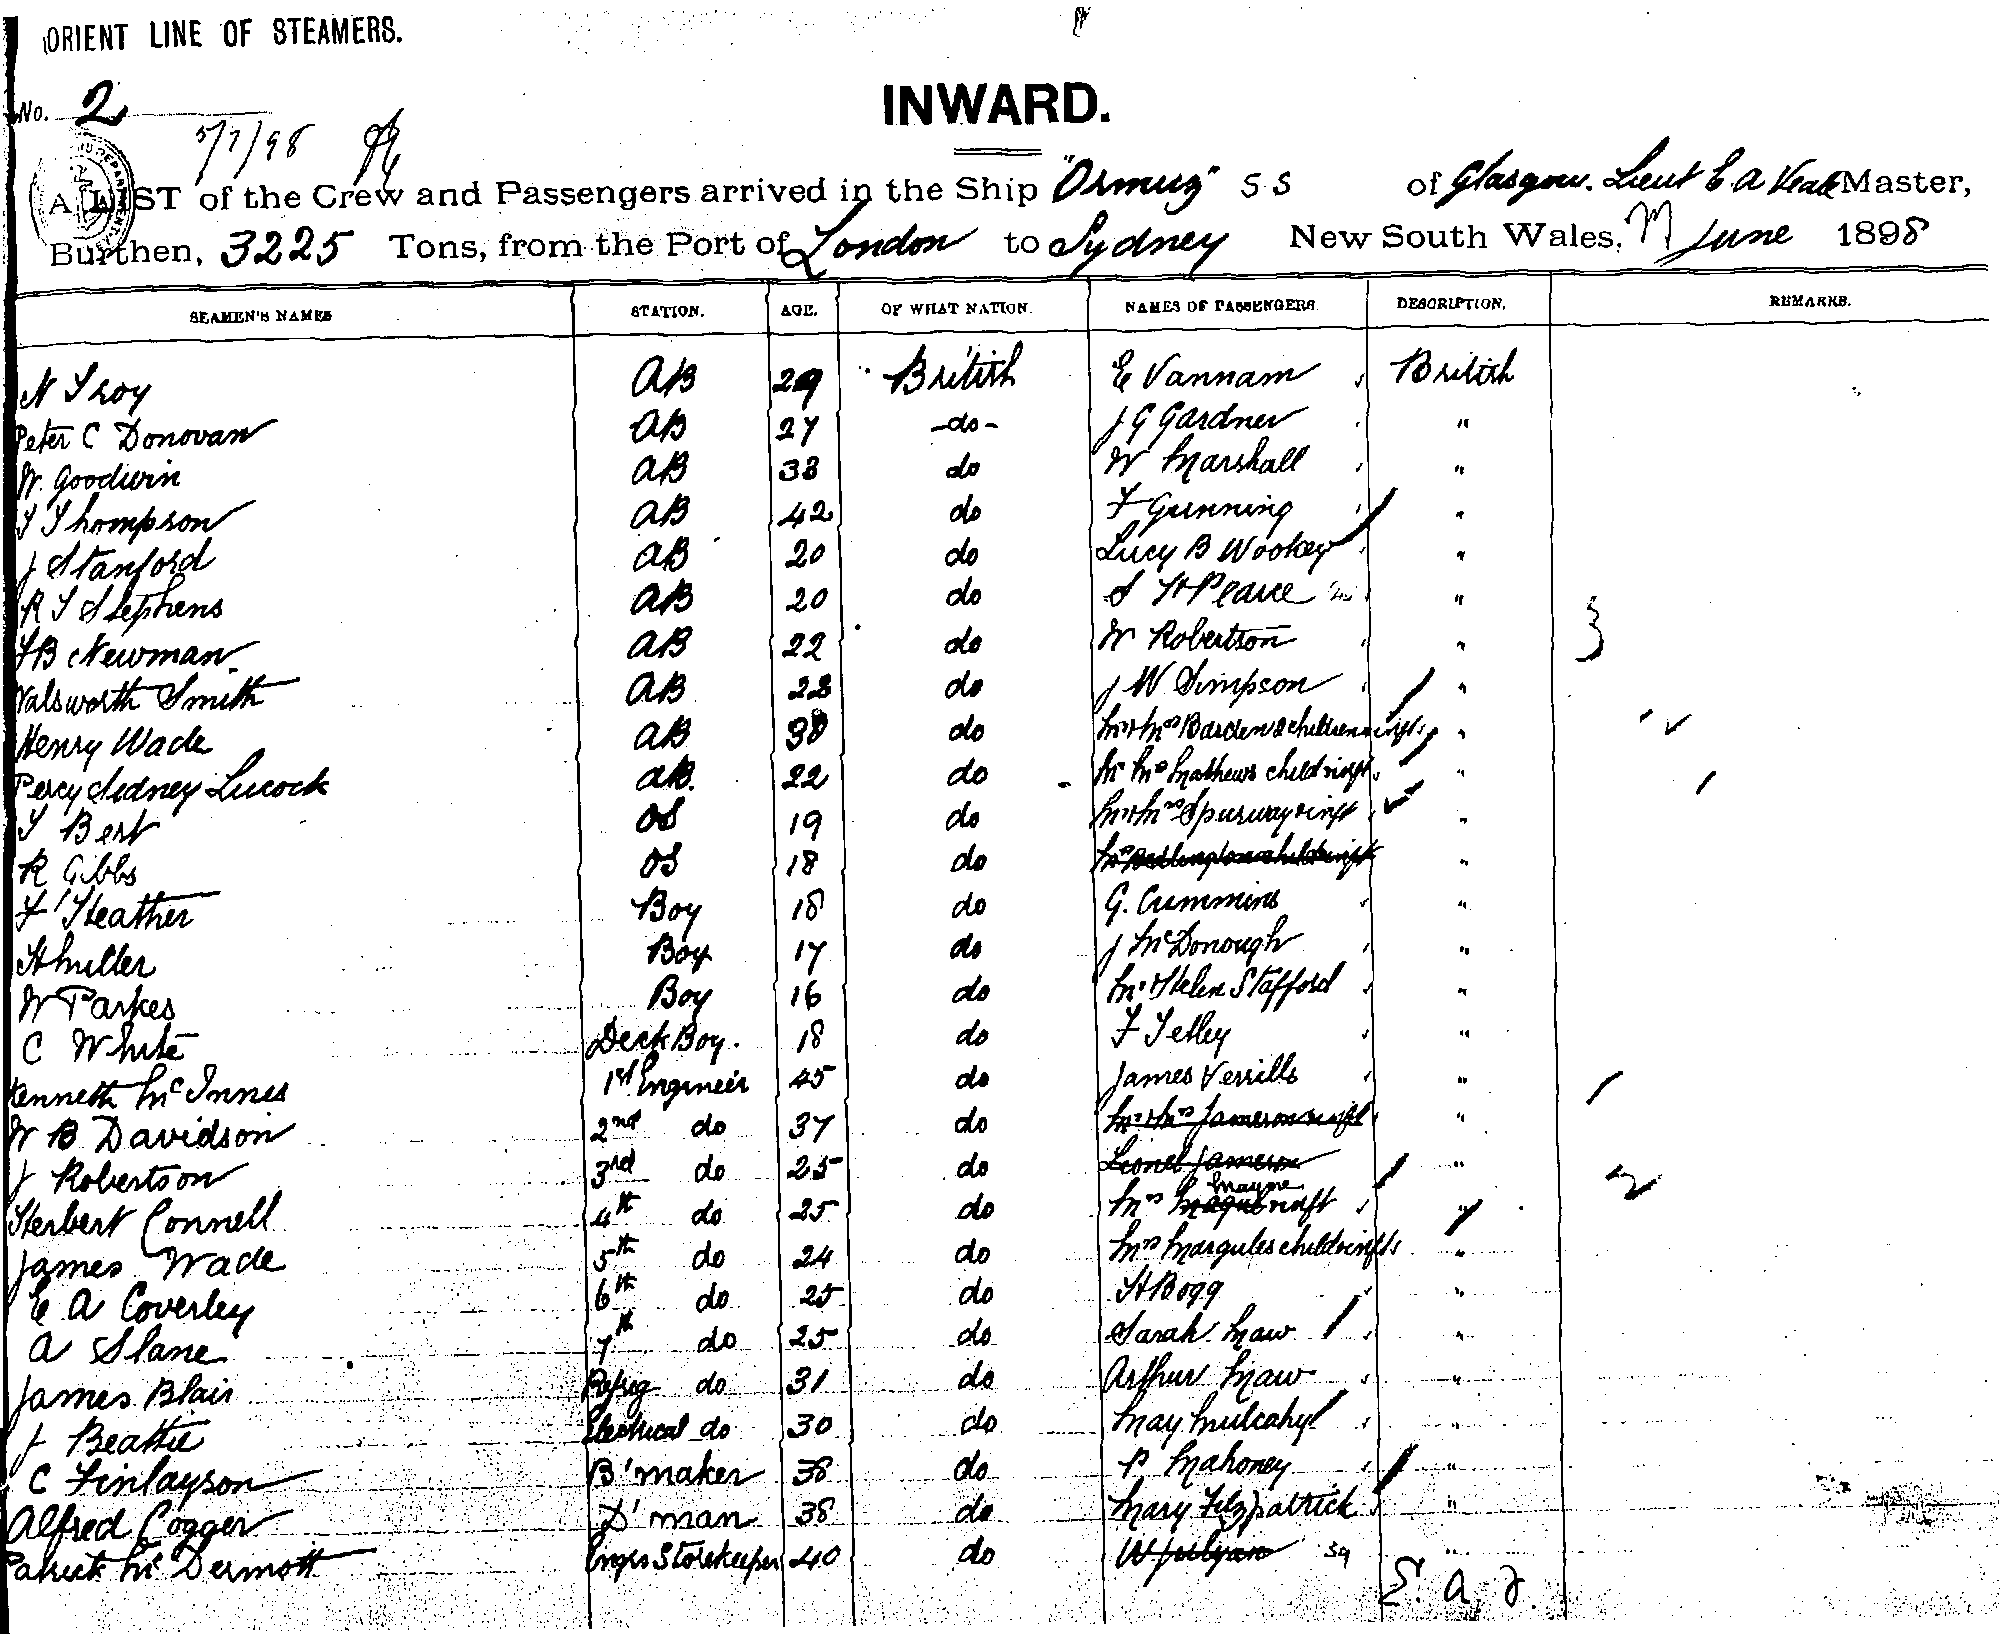 ORIENT LINE OF STEAMERS.
No. 2
5/7/98
INWARD.
A LIST of the Crew and Passengers arrived in the Ship "Ormuz" SS of Glasgow. Lieut E A Veale Master,
Burthen, 3225 Tons, from the Port of London to Sydney New South Wales, June 1898
SEAMEN'S NAMES STATION. AGE. OF WHAT NATION. NAMES OF PASSENGERS. DESCRIPTION. REMARKS.
N Troy AB 29 British E Vannam British
Peter C Donovan AB 27 -do- J G Gardner "
W. Goodwin AB 33 do W Marshall "
T Thompson AB 42 do F Gunning "
J Stanford AB 20 do Lucy B Wookey "
R T Stephens AB 20 do S H Pearce "
F B Newman AB 22 do W Robertson "
Walsworth Smith AB 22 do J W Simpson "
Henry Wade AB 38 do Mr & Mrs Barden 2 children & infts "
Percy Sidney Lucock AB. 22 do Mr Mrs Mathews child & inft "
T Best OS 19 do Mr & Mrs Spurway & inft "
R Gibbs OS 18 do "
F Heather Boy 18 do G. Cummins "
H Miller Boy 17 do J McDonough "
W Parkes Boy 16 do Helen Stafford "
C White Deck Boy. 18 do F Tetley "
Kenneth McInnes 1st Engineer 45 do James Verrills "
W B Davidson 2nd do 37 do Mr & Mrs Jameson & inft "
J Robertson 3rd do 25 do Lionel Jameson "
Herbert Connell 4th do 25 do Mrs Mayne & inft "
James Wade 5th do 24 do Mrs Margules child & infts "
E A Coverley 6th do 25 do H Bogg "
A Slane 7th do 25 do Sarah Maw "
James Blair Refrig do 31 do Arthur Maw "
J Beattie Electrical do 30 do May Mulcahy "
C Finlayson B'maker 38 do P Mahoney "
Alfred Cogger D'man 38 do Mary Fitzpatrick "
Patrick McDermott Engrs Storekeeper 40 do W Julyan 59 "